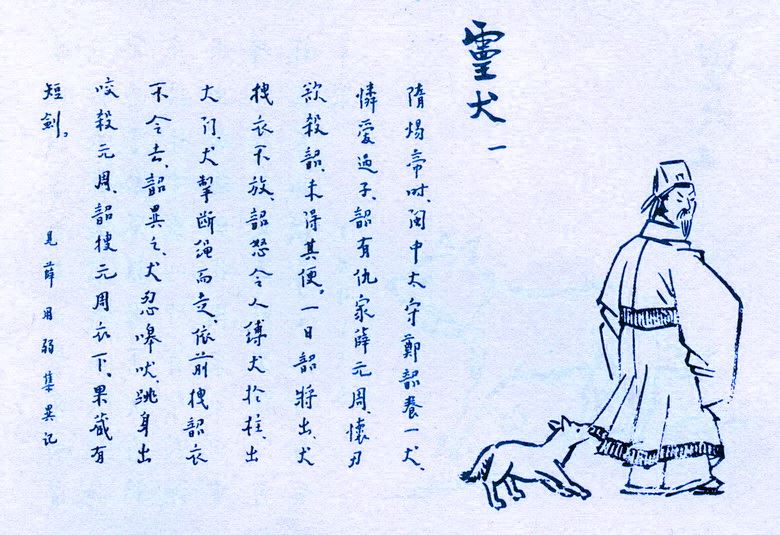 靈犬 一
隋煬帝时、闽中太守鄭韶養一犬、
憐爱過子、韶有仇家薛元周、懷刃
欲殺韶、未得其便。一日韶將出、犬
拽衣不放、韶怒令人缚犬於柱、出
大门、犬掣断绳而走、依前拽韶衣
不令去、韶異之、犬忽嗥吠、跳身出
咬殺元周、韶搜元周衣下、果藏有
短劍。
見薛用弱集異记